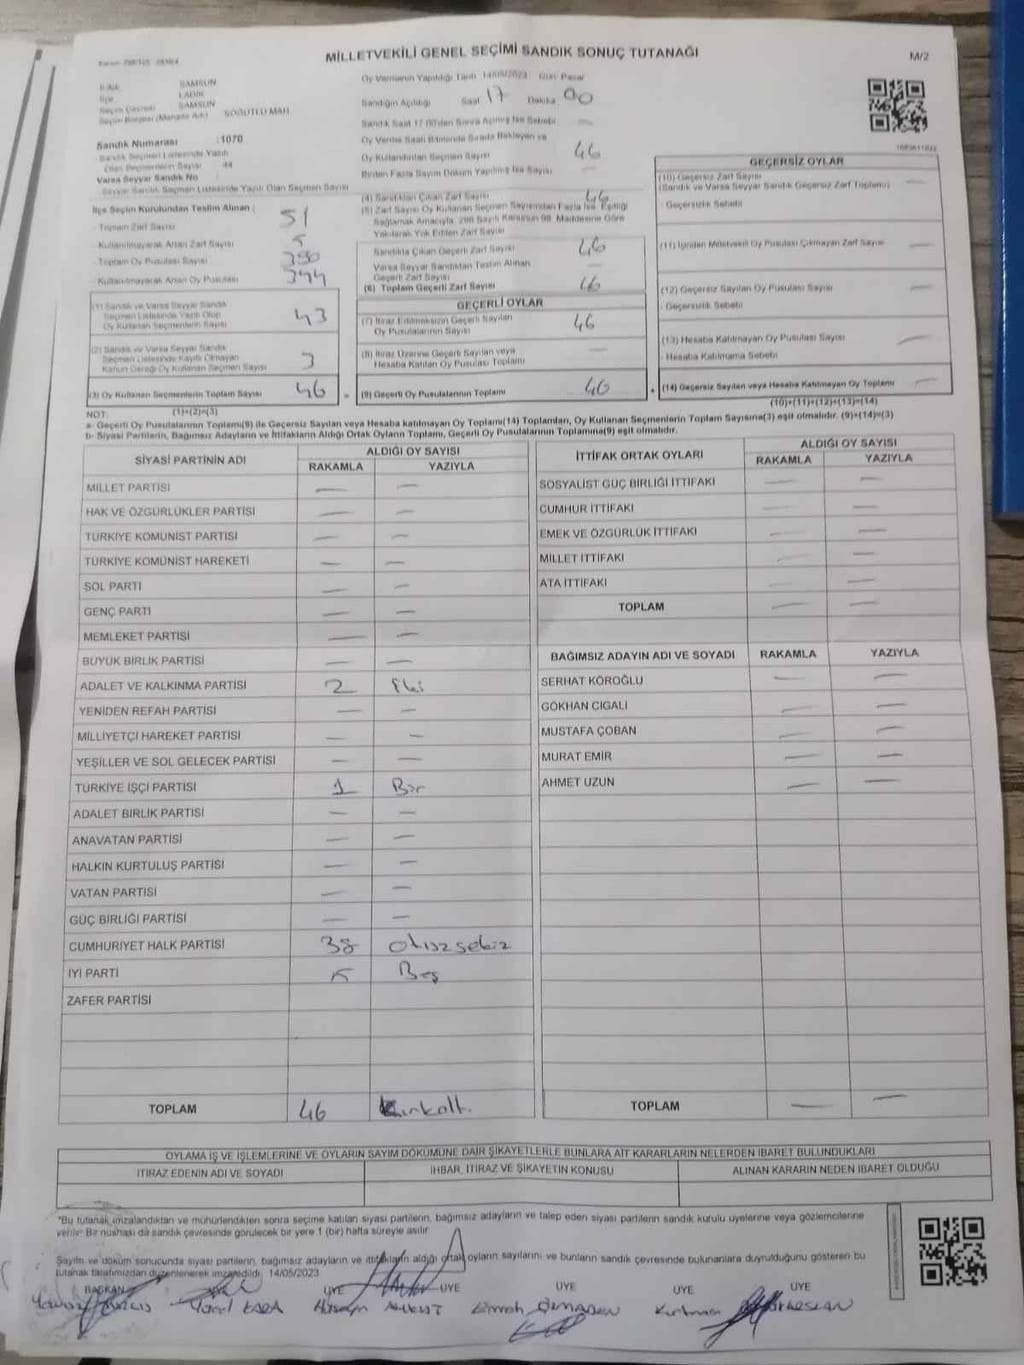 MİLLETVEKİLİ GENEL SEÇİMİ SANDIK SONUÇ TUTANAĞI
M/2
SAMSUN
LADİK
SAMSUN
SÖĞÜTLÜ MAH.
Oy Vermenin Yapıldığı Tarih 14/05/2023 Gün Pazar
Sandığın Açıldığı Saat 17 Dakika 00
Sandık Saat 17.00'den Sonra Açılmış İse Sebebi —
Sandık Numarası :1070
Sandık Seçmen Listesinde Yazılı
Olan Seçmenlerin Sayısı 44
Varsa Seyyar Sandık No
Seyyar Sandık Seçmen Listesinde Yazılı Olan Seçmen Sayısı
Oy Verme Saati Bitiminde Sırada Bekleyen ve
Oy Kullandırılan Seçmen Sayısı 46
Birden Fazla Sayım Döküm Yapılmış İse Sayısı —
İlçe Seçim Kurulundan Teslim Alınan :
- Toplam Zarf Sayısı 51
- Kullanılmayarak Artan Zarf Sayısı 5
- Toplam Oy Pusulası Sayısı
- Kullanılmayarak Artan Oy Pusulası
(1) Sandık ve Varsa Seyyar Sandık
Seçmen Listesinde Yazılı Olup
Oy Kullanan Seçmenlerin Sayısı 43
(2) Sandık ve Varsa Seyyar Sandık
Seçmen Listesinde Kayıtlı Olmayan
Kanun Gereği Oy Kullanan Seçmen Sayısı 3
(3) Oy Kullanan Seçmenlerin Toplam Sayısı 46
(1)+(2)=(3)
(4) Sandıktan Çıkan Zarf Sayısı 46
(5) Zarf Sayısı Oy Kullanan Seçmen Sayısından Fazla İse, Eşitliği
Sağlamak Amacıyla, 298 Sayılı Kanunun 98. Maddesine Göre
Yakılarak Yok Edilen Zarf Sayısı
Sandıkta Çıkan Geçerli Zarf Sayısı 46
Varsa Seyyar Sandıktan Teslim Alınan
Geçerli Zarf Sayısı
(6) Toplam Geçerli Zarf Sayısı 46
GEÇERLİ OYLAR
(7) İtiraz Edilmeksizin Geçerli Sayılan
Oy Pusulalarının Sayısı 46
(8) İtiraz Üzerine Geçerli Sayılan veya
Hesaba Katılan Oy Pusulası Toplamı —
(9) Geçerli Oy Pusulalarının Toplamı 46
GEÇERSİZ OYLAR
(10) Geçersiz Zarf Sayısı —
(Sandık ve Varsa Seyyar Sandık Geçersiz Zarf Toplamı)
- Geçersizlik Sebebi
(11) İçinden Milletvekili Oy Pusulası Çıkmayan Zarf Sayısı —
(12) Geçersiz Sayılan Oy Pusulası Sayısı —
- Geçersizlik Sebebi
(13) Hesaba Katılmayan Oy Pusulası Sayısı —
- Hesaba Katılmama Sebebi
(14) Geçersiz Sayılan veya Hesaba Katılmayan Oy Toplamı —
(10)+(11)+(12)+(13)=(14)
NOT:
a- Geçerli Oy Pusulalarının Toplamı(9) ile Geçersiz Sayılan veya Hesaba katılmayan Oy Toplamı(14) Toplamları, Oy Kullanan Seçmenlerin Toplam Sayısına(3) eşit olmalıdır. (9)+(14)=(3)
b- Siyasi Partilerin, Bağımsız Adayların ve İttifakların Aldığı Ortak Oyların Toplamı, Geçerli Oy Pusulalarının Toplamına(9) eşit olmalıdır.
SİYASİ PARTİNİN ADI
ALDIĞI OY SAYISI
RAKAMLA YAZIYLA
MİLLET PARTİSİ — —
HAK VE ÖZGÜRLÜKLER PARTİSİ — —
TÜRKİYE KOMÜNİST PARTİSİ — —
TÜRKİYE KOMÜNİST HAREKETİ — —
SOL PARTİ — —
GENÇ PARTİ — —
MEMLEKET PARTİSİ — —
BÜYÜK BİRLİK PARTİSİ — —
ADALET VE KALKINMA PARTİSİ 2 İki
YENİDEN REFAH PARTİSİ — —
MİLLİYETÇİ HAREKET PARTİSİ — —
YEŞİLLER VE SOL GELECEK PARTİSİ — —
TÜRKİYE İŞÇİ PARTİSİ 1 Bir
ADALET BİRLİK PARTİSİ — —
ANAVATAN PARTİSİ — —
HALKIN KURTULUŞ PARTİSİ — —
VATAN PARTİSİ — —
GÜÇ BİRLİĞİ PARTİSİ — —
CUMHURİYET HALK PARTİSİ 38 otuzsekiz
İYİ PARTİ 5 Beş
ZAFER PARTİSİ
TOPLAM 46 Kırkaltı
İTTİFAK ORTAK OYLARI
ALDIĞI OY SAYISI
RAKAMLA YAZIYLA
SOSYALİST GÜÇ BİRLİĞİ İTTİFAKI — —
CUMHUR İTTİFAKI — —
EMEK VE ÖZGÜRLÜK İTTİFAKI — —
MİLLET İTTİFAKI — —
ATA İTTİFAKI — —
TOPLAM — —
BAĞIMSIZ ADAYIN ADI VE SOYADI RAKAMLA YAZIYLA
SERHAT KÖROĞLU — —
GÖKHAN CIGALI — —
MUSTAFA ÇOBAN — —
MURAT EMİR — —
AHMET UZUN — —
TOPLAM — —
OYLAMA İŞ VE İŞLEMLERİNE VE OYLARIN SAYIM DÖKÜMÜNE DAİR ŞİKAYETLERLE BUNLARA AİT KARARLARIN NELERDEN İBARET BULUNDUKLARI
İTİRAZ EDENİN ADI VE SOYADI
İHBAR, İTİRAZ VE ŞİKAYETİN KONUSU
ALINAN KARARIN NEDEN İBARET OLDUĞU
"Bu tutanak imzalandıktan ve mühürlendikten sonra seçime katılan siyasi partilerin, bağımsız adayların ve talep eden siyasi partilerin sandık kurulu üyelerine veya gözlemcilerine
verilir. Bir nüshası da sandık çevresinde görülecek bir yere 1 (bir) hafta süreyle asılır.
Sayım ve döküm sonucunda siyasi partilerin, bağımsız adayların ve ittifakların aldığı ortak oyların sayılarını ve bunların sandık çevresinde bulunanlara duyrulduğunu gösteren bu
tutanak tarafımızdan düzenlenerek imza edildi. 14/05/2023
BAŞKAN ÜYE ÜYE ÜYE ÜYE ÜYE
Hüseyin